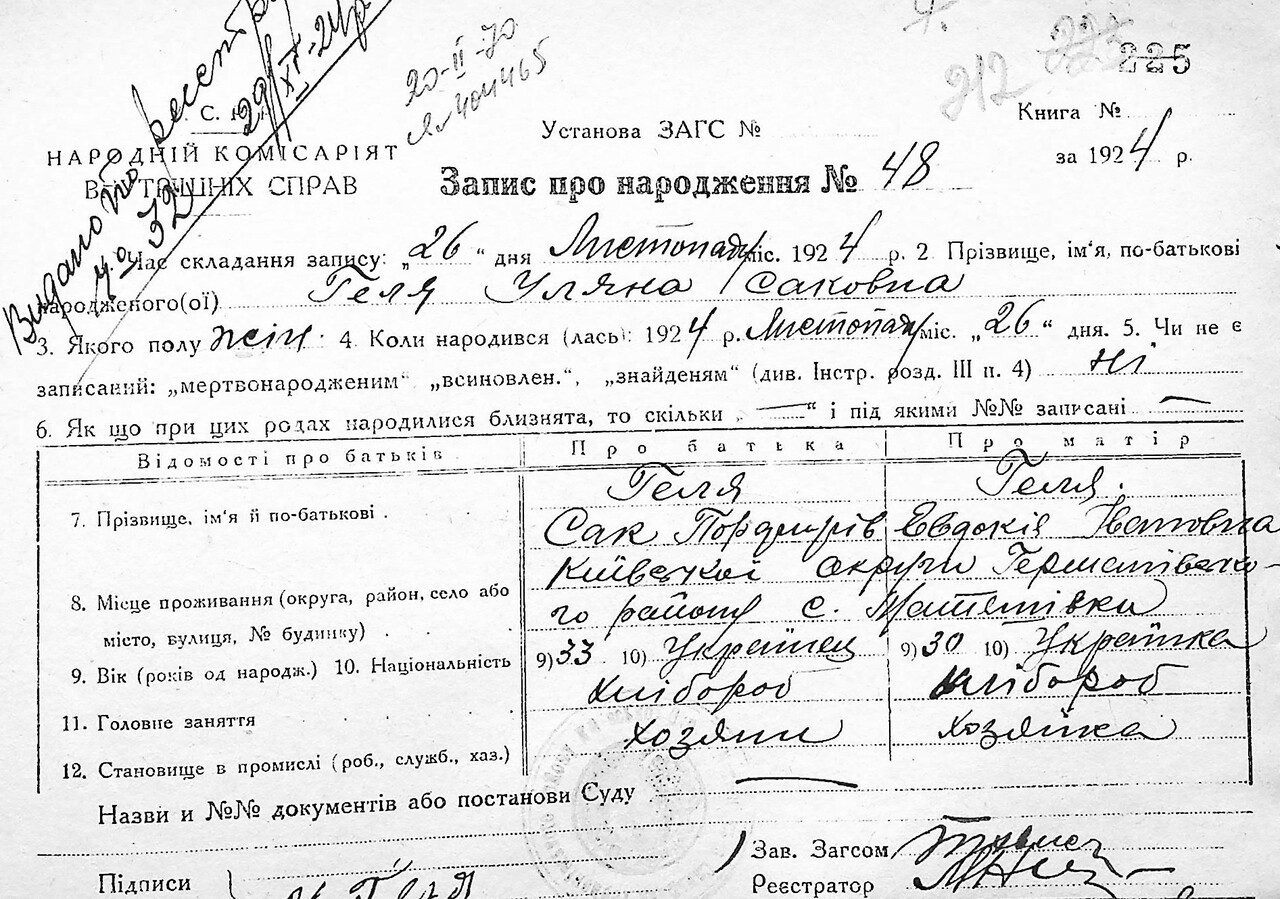 Видано по реєстру
№ 32 29/XI-24р
20-II-70
212 225
С.
Установа ЗАГС №
Книга №
НАРОДНІЙ КОМІСАРІЯТ
ВНУТРІШНІХ СПРАВ
за 1924 р.
Запис про народження № 48
Час складання запису: „26“ дня Листопада міс. 1924 р. 2 Прізвище, ім'я, по-батькові
народженого(ої) Геля Уляна Саковна
3. Якого полу жін. 4. Коли народився (лась): 1924 р. Листопада міс. „26“ дня. 5. Чи не є
записаний: „мертвонародженим“ „всиновлен.“, „знайденям“ (див. Інстр. розд. III п. 4) ні
6. Як що при цих родах народилися близнята, то скільки „—“ і під якими №№ записані —
Відомості про батьків Про батька Про матір
7. Прізвище, ім'я й по-батькові Геля Геля
Сак Порфирів Евдокія Івановна
8. Місце проживання (округа, район, село або Київської округи Германівсько-
місто, вулиця, № будинку) го району с. Матяшівка
9. Вік (років од народж.) 10. Національність 9) 33 10) Українец 9) 30 10) Українка
11. Головне заняття хлібороб хлібороб
12. Становище в промислі (роб., служб., хаз.) хозяин хозяйка
Назви и №№ документів або постанови Суду —
Підписи
Зав. Загсом
Реєстратор